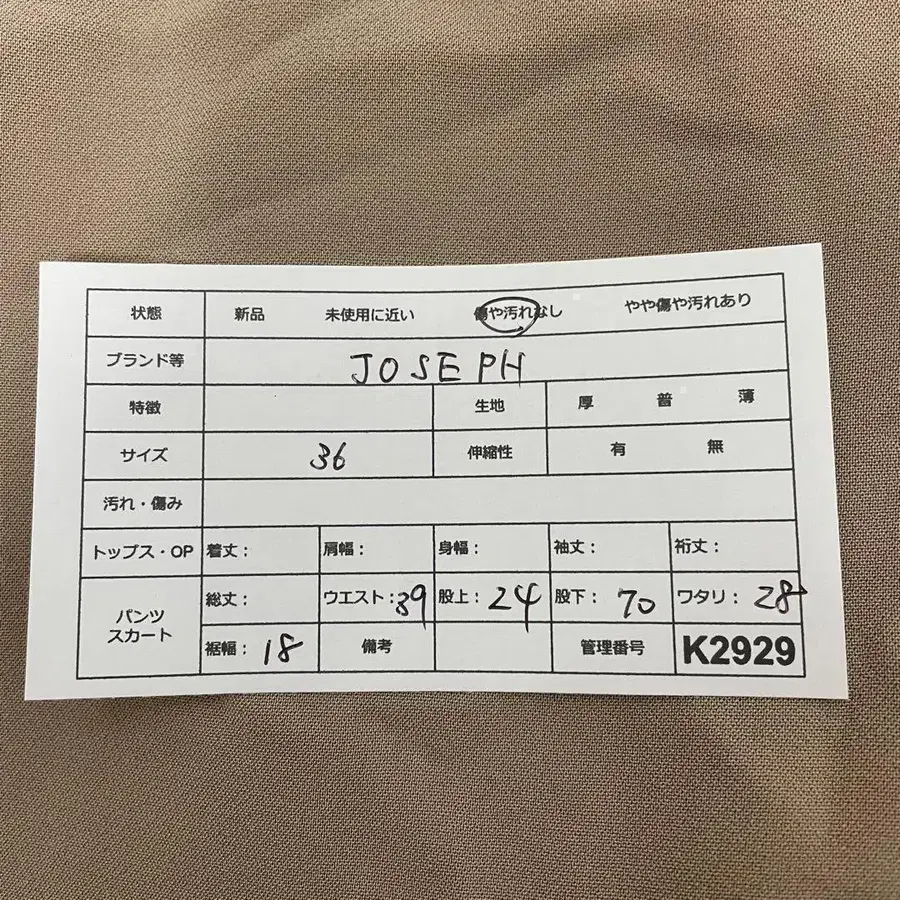 状態 新品 未使用に近い 傷や汚れなし やや傷や汚れあり
ブランド等 JOSEPH
特徴 生地 厚 普 薄
サイズ 36 伸縮性 有 無
汚れ・傷み
トップス・OP 着丈: 肩幅: 身幅: 袖丈: 裄丈:
パンツ スカート 総丈: ウエスト:39 股上:24 股下:70 ワタリ:28
裾幅:18 備考 管理番号 K2929